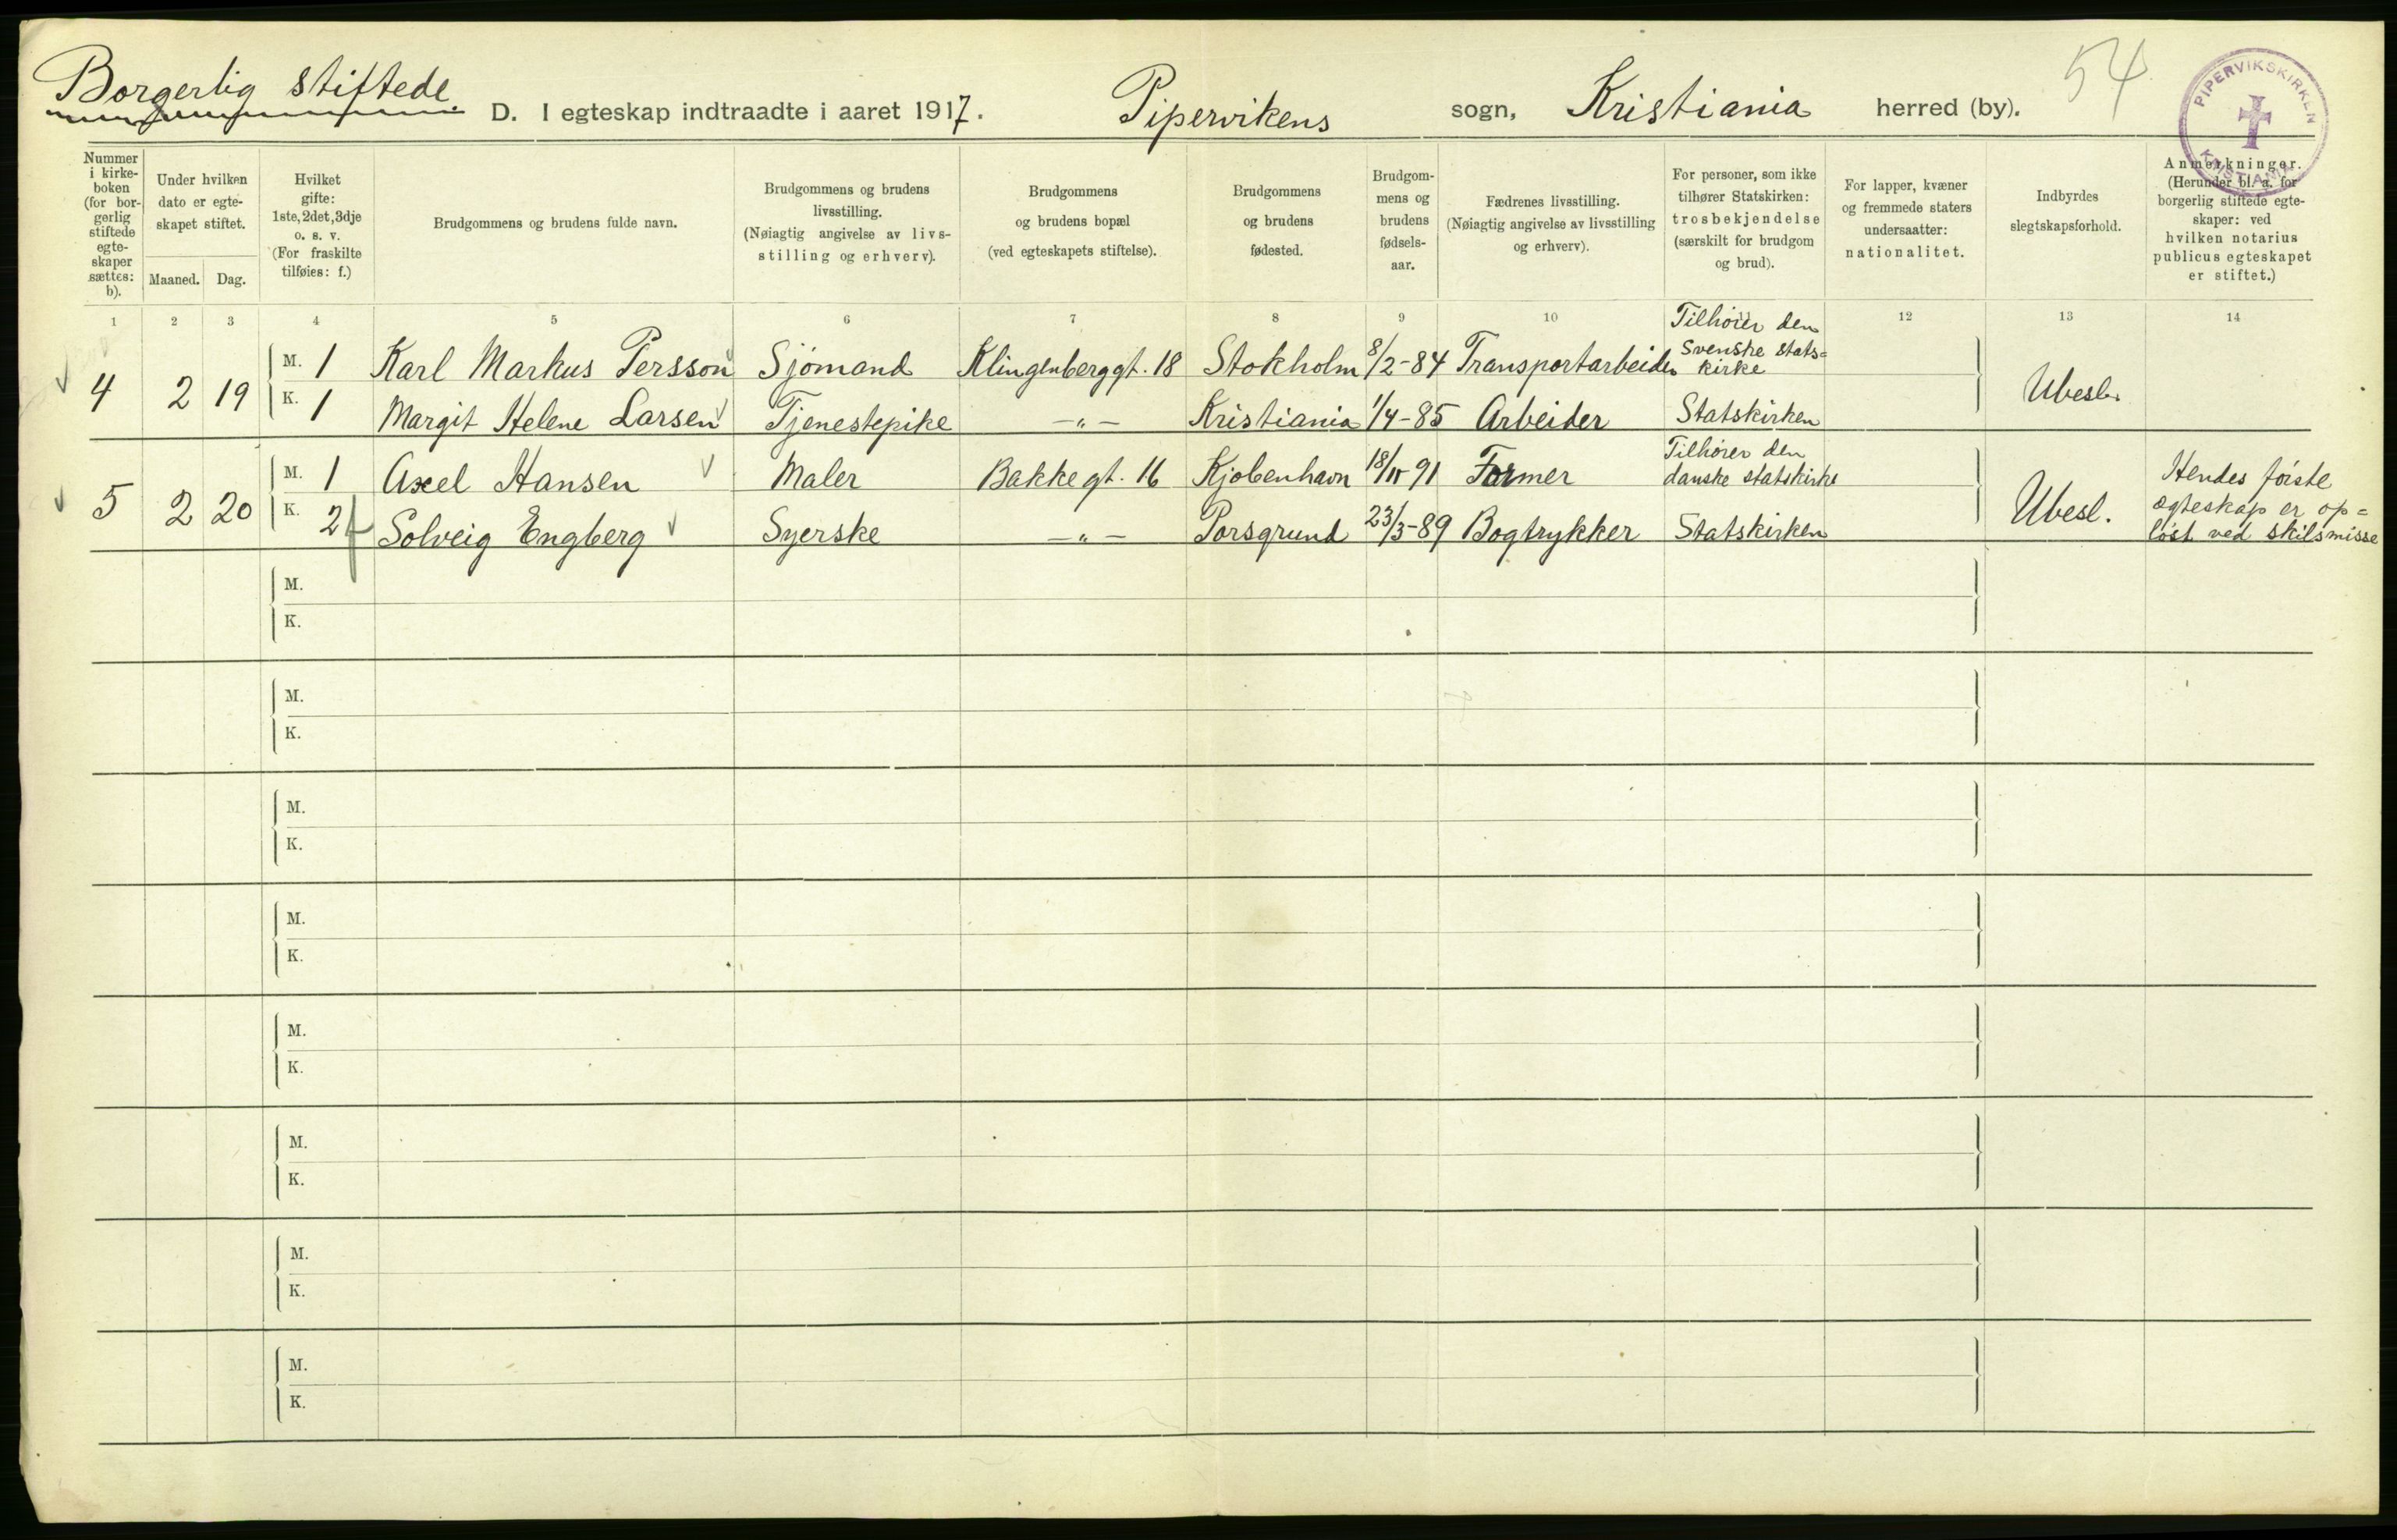 Borgerlig stiftede.
D. I egteskap indtraadte i aaret 1917. Pipervikens sogn, Kristiania herred (by). 54
PIPERVIKSKIRKEN KRISTIANIA
Nummer i kirke-boken (for bor-gerlig stiftede egte-skaper sættes: b).
Under hvilken dato er egte-skapet stiftet.
Maaned. Dag.
Hvilket gifte: 1ste, 2det, 3dje o. s. v. (For fraskilte tilføies: f.)
Brudgommens og brudens fulde navn.
Brudgommens og brudens livsstilling. (Nøiagtig angivelse av livs-stilling og erhverv).
Brudgommens og brudens bopæl (ved egteskapets stiftelse).
Brudgommens og brudens fødested.
Brudgom-mens og brudens fødsels-aar.
Fædrenes livsstilling. (Nøiagtig angivelse av livsstilling og erhverv).
For personer, som ikke tilhører Statskirken: trosbekjendelse (særskilt for brudgom og brud).
For lapper, kvæner og fremmede staters undersaatter: nationalitet.
Indbyrdes slegtskapsforhold.
Anmerkninger. (Herunder bl. a. for borgerlig stiftede egte-skaper: ved hvilken notarius publicus egteskapet er stiftet.)
1 2 3 4 5 6 7 8 9 10 11 12 13 14
4 2 19 M. 1 Karl Markus Persson Sjömand Klingenberggt. 18 Stokholm 8/2-84 Transportarbeider Tilhörer den Svenske stats=kirke Ubesl.
K. 1 Margit Helene Larsen Tjenestepike -"- Kristiania 1/4-85 Arbeider Statskirken
5 2 20 M. 1 Axel Hansen Maler Bakkegt. 16 Kjöbenhavn 18/11 91 Former Tilhörer den danske statskirke Ubesl.
K. 2 f Solveig Engberg Syerske -"- Porsgrund 23/3-89 Bogtrykker Statskirken
Hendes förste
egteskap er op=
löst ved skilsmisse
M.
K.
M.
K.
M.
K.
M.
K.
M.
K.
M.
K.
M.
K.
M.
K.